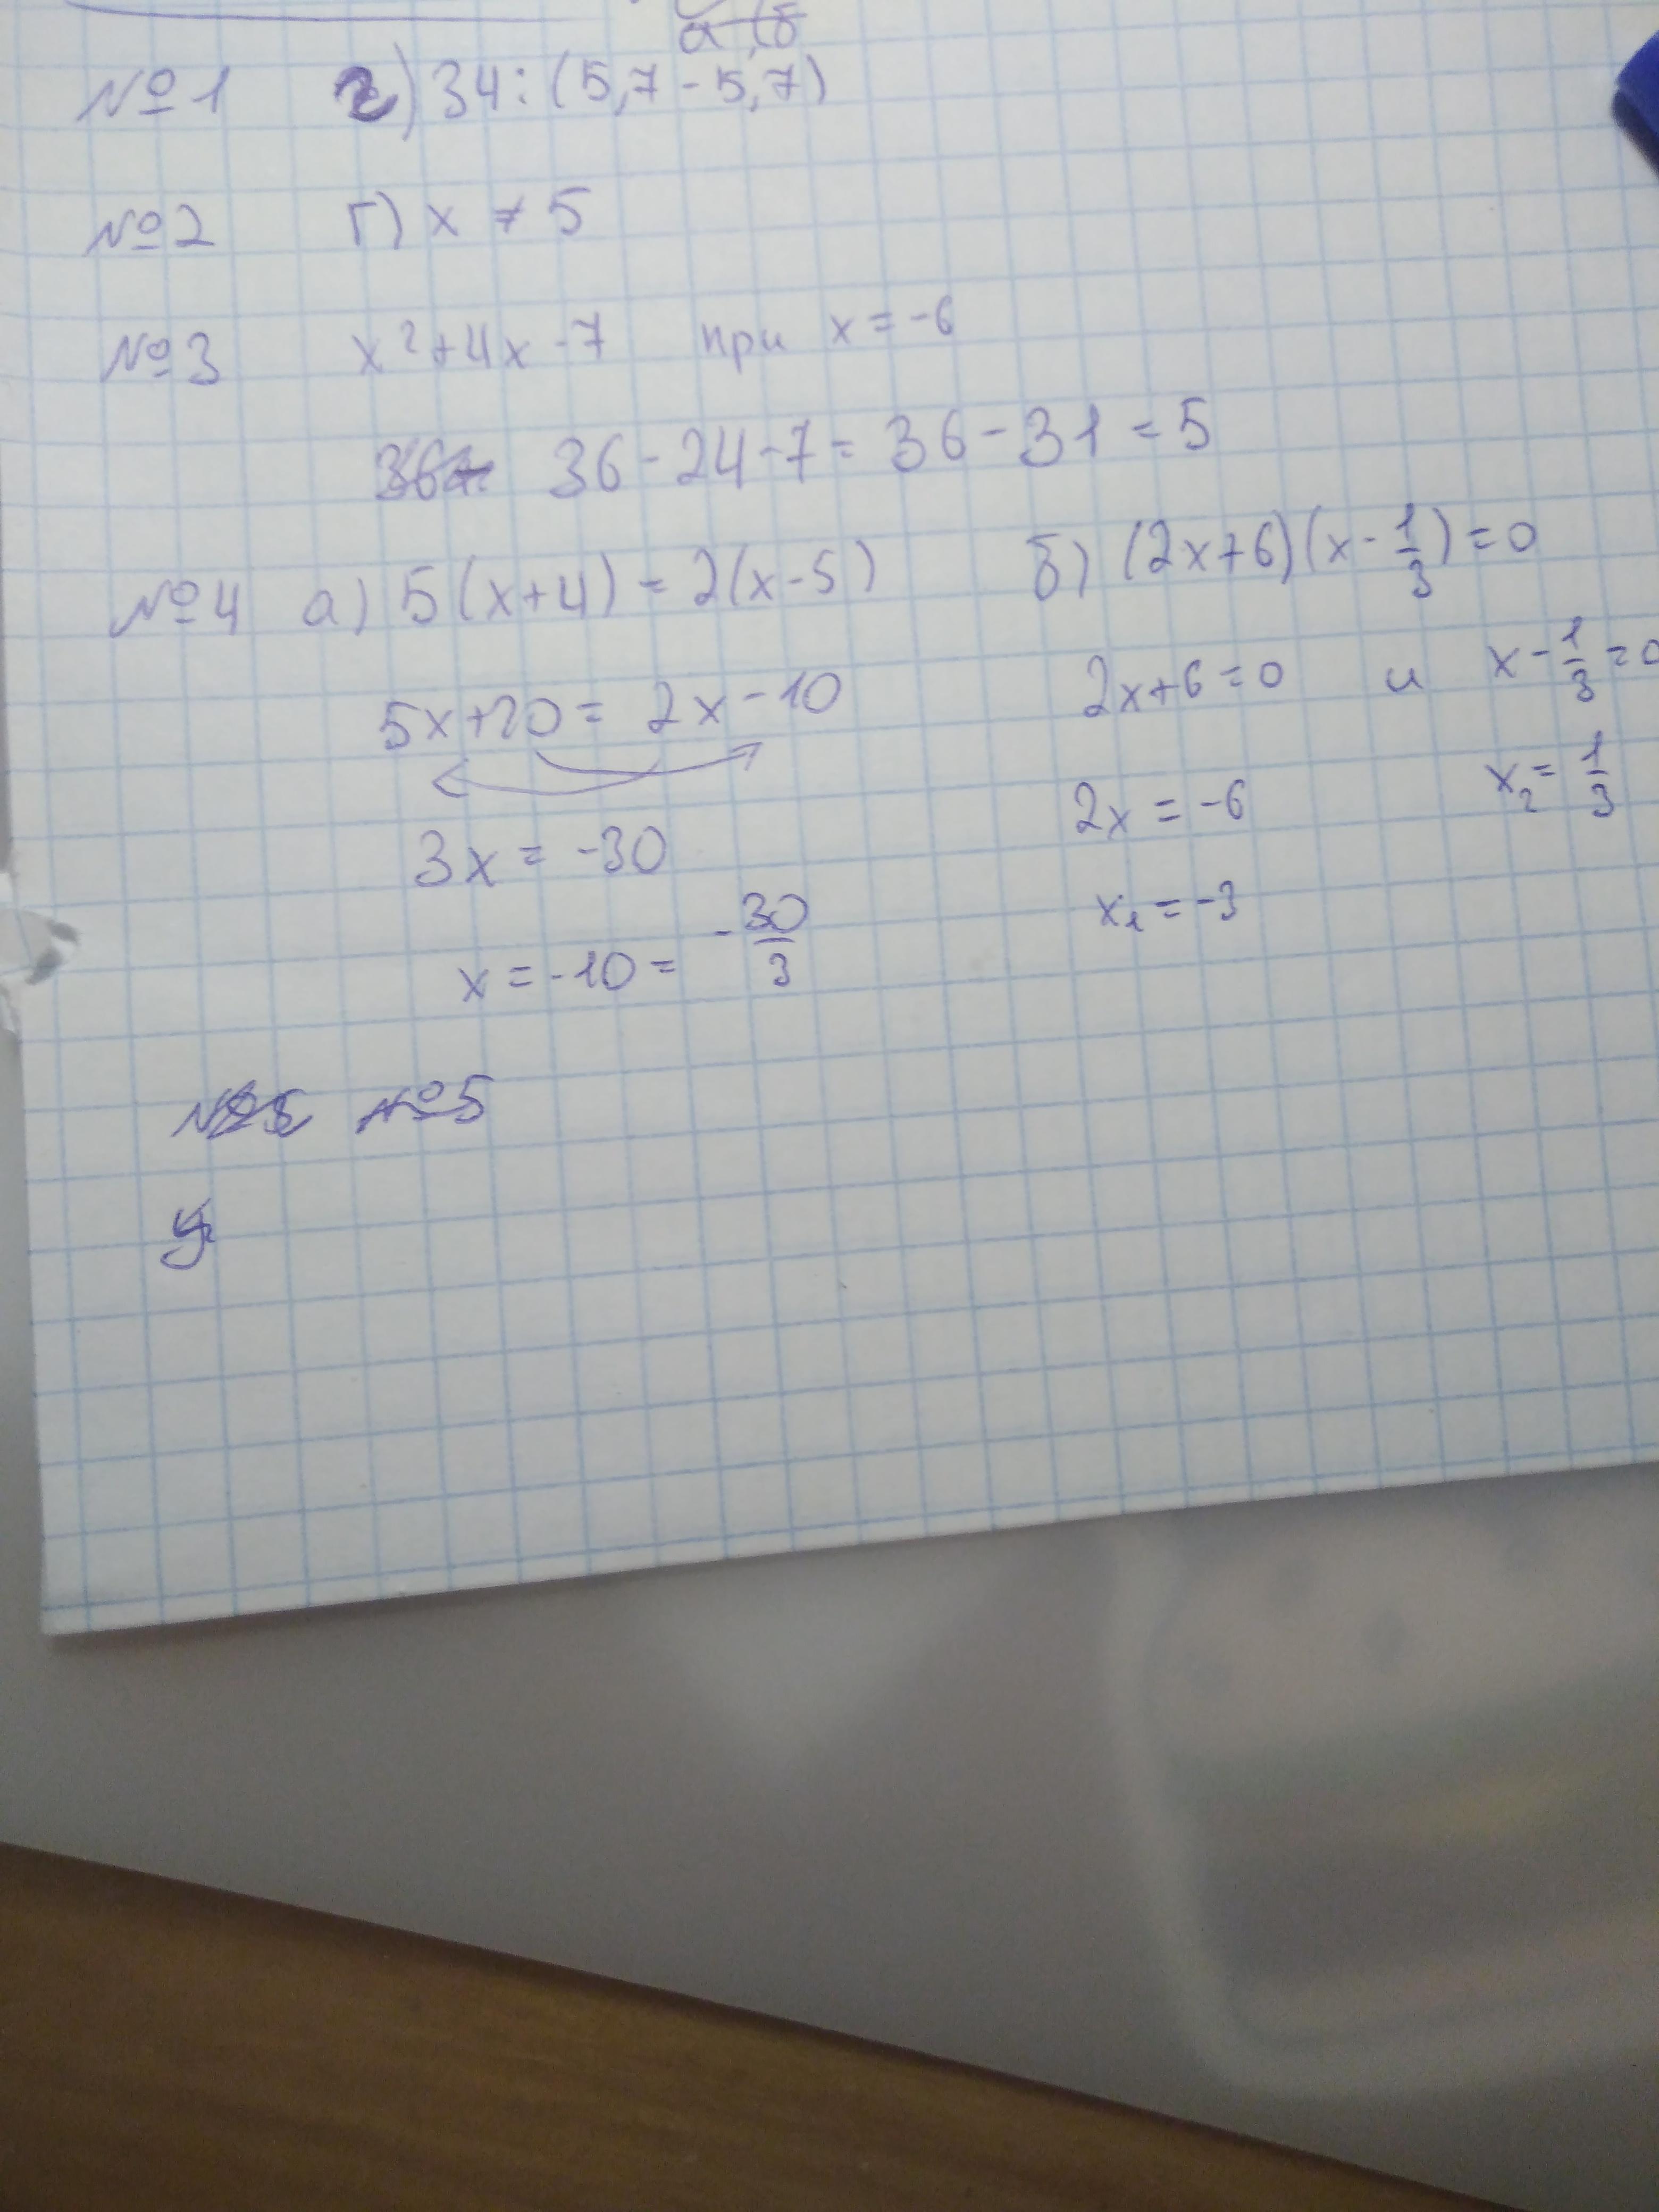 а, (б
№1 г) 34 : (5,7 - 5,7)
№2 г) x ≠ 5
№3 x² + 4x - 7 при x = -6
36 - 24 - 7 = 36 - 31 = 5
№4 а) 5(x+4) = 2(x-5) б) (2x+6)(x - 1/3) = 0
5x+20 = 2x - 10 2x+6 = 0 и x - 1/3 = 0
3x = -30 2x = -6 x₂ = 1/3
x = -10 = -30/3 x₁ = -3
№5